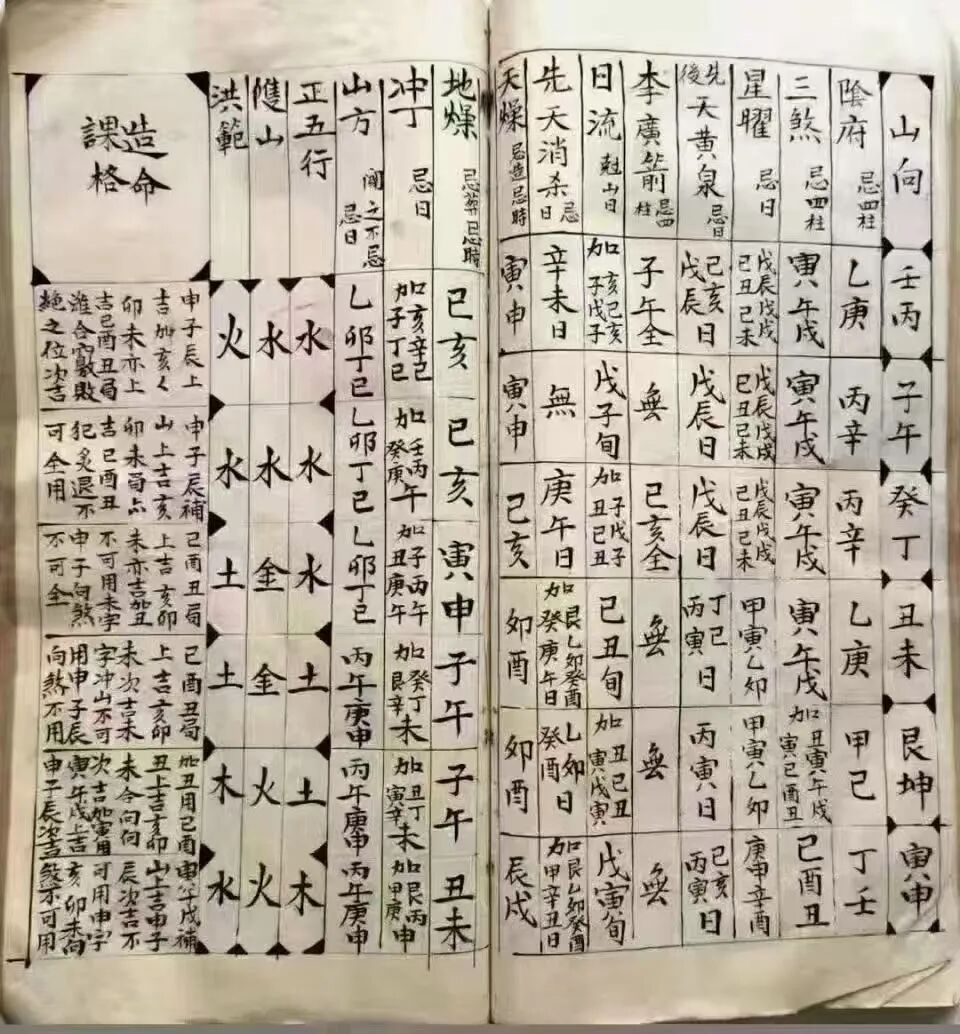 山向
壬丙
子午
癸丁
丑未
艮坤
寅申
陰府 忌四柱
乙庚
丙辛
丙辛
乙庚
甲己
丁壬
三煞 忌四柱
寅午戌
寅午戌
寅午戌
寅午戌
加丑寅午戌
寅巳酉丑
巳酉丑
星曜 忌日
戊辰戊戌
己丑己未
戊辰戊戌
己丑己未
戊辰戊戌
己丑己未
甲寅乙卯
甲寅乙卯
庚申辛酉
先後天黃泉 忌日
己亥
戊辰日
戊辰日
戊辰日
丁巳
丙寅日
丙寅日
己亥
丙寅日
李廣箭 忌四柱
子午全
無
巳亥全
無
無
無
日流 尅山日
加亥己亥
子戊子
戊子旬
加子戊子
丑己丑
己丑旬
加丑己丑
寅戊寅
戊寅旬
先天消杀 忌日
辛未日
無
庚午日
加艮乙卯癸酉
癸庚午日
乙卯日
癸酉
加艮乙卯癸酉
甲辛丑日
天燥 忌造忌時
寅申
寅申
巳亥
卯酉
卯酉
辰戌
地燥 忌葬忌時
巳亥
巳亥
寅申
子午
子午
丑未
冲丁 忌日
加亥辛巳
子丁巳
加壬丙午
癸庚
加子丙午
丑庚午
加癸丁未
艮辛
加丑丁未
寅辛
加艮丙申
甲庚
山方 忌日
乙卯丁巳
乙卯丁巳
乙卯丁巳
丙午庚申
丙午庚申
丙午庚申
正五行
水
水
水
土
土
木
雙山
水
水
金
金
火
火
洪範
火
水
土
土
木
水
造命
課格
申子辰上
吉加亥
卯未亦上
吉巳酉丑局
絶之位次吉
申子辰補
山上吉亥
卯未局
吉巳酉丑
犯炙退不
可全用
巳酉丑局
上吉亥卯
未亦吉加丑
不可用未字
申子向煞
不可全
巳酉丑局
上吉亥卯
未次吉未
字冲山不可
用申子辰
向煞不用
加丑用巳酉
丑上吉亥卯
未合向
次吉加寅用
寅午戌上吉
申子辰次吉
寅午戌補
山上吉申子
辰次吉不
可用申字
亥卯未向
煞不可用